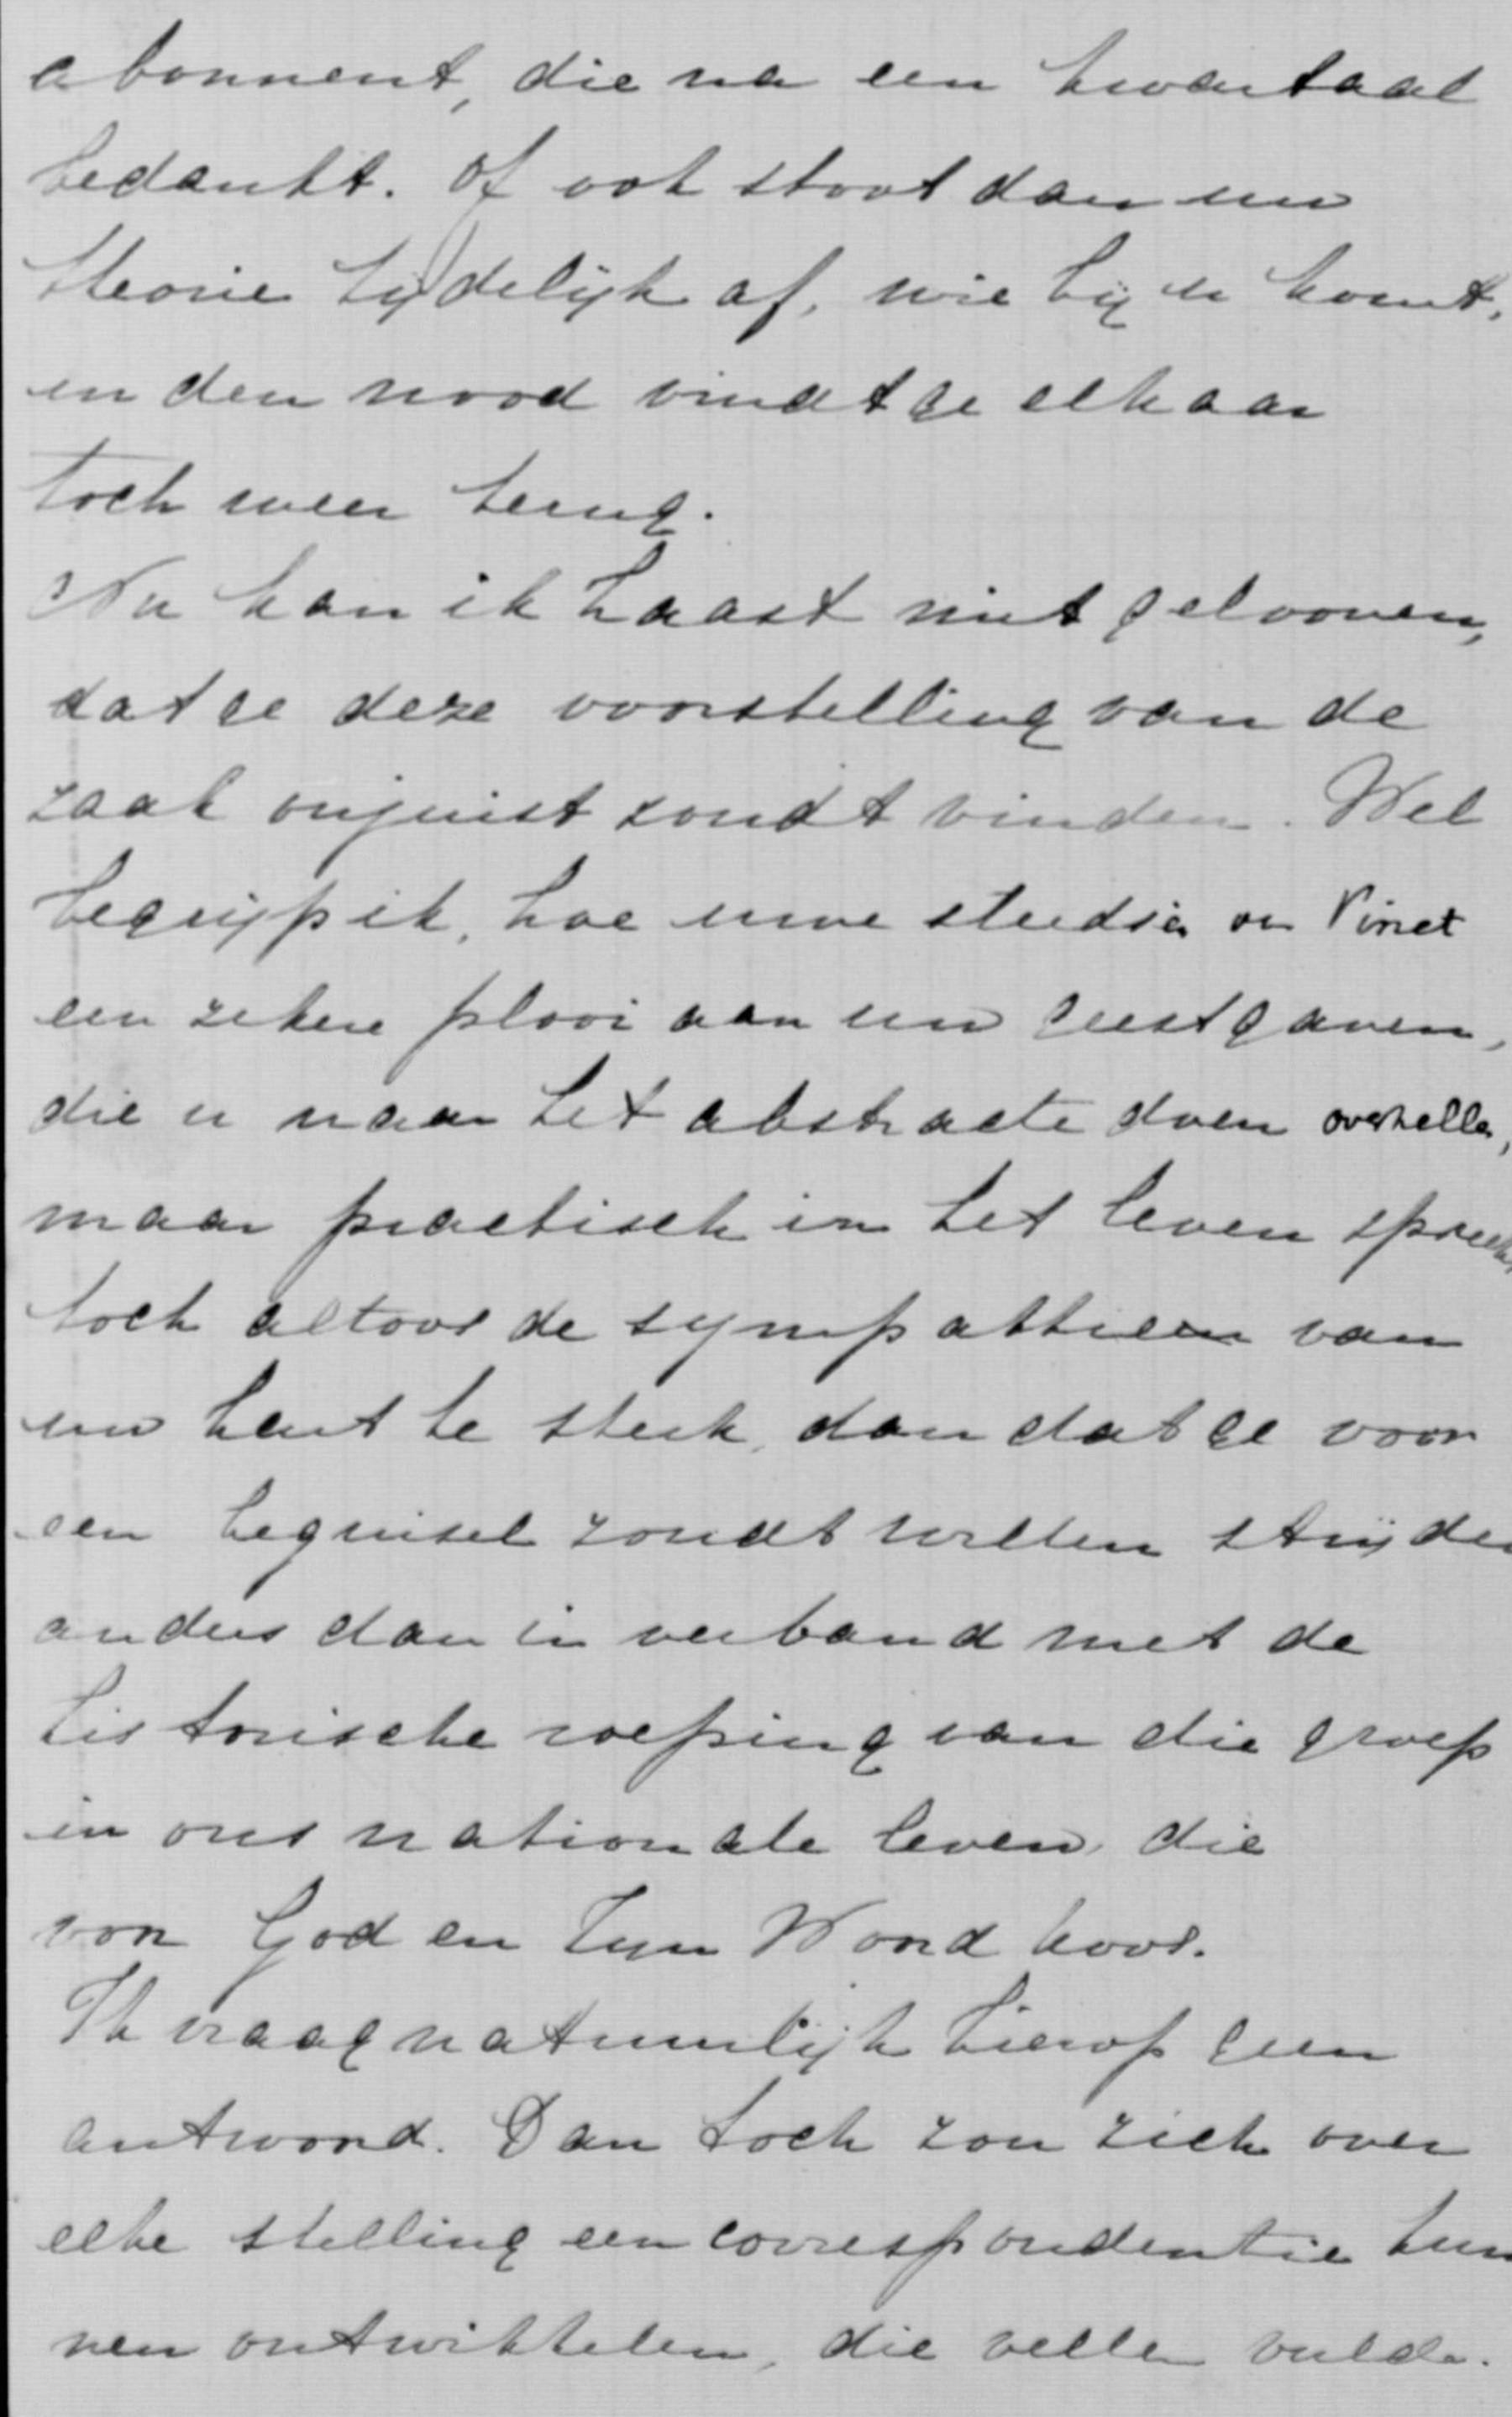 abonnent, die na een kwartaal
bedankt. Of ook stoot dan uw
theorie tijdelijk af, wie bij u komt,
in den nood vindt ge elkaar
toch weer terug.
Nu kan ik haast niet gelooven,
dat ge deze voorstelling van de
zaak onjuist zoudt vinden. Wel
begrijp ik, hoe uwe studiën Vinet
een zekere plooi aan uw geest gaven,
die u naar het abstracte doen overhellen,
maar practisch in het leven spreken
toch altoos de sympathieen van
uw hart te sterk, dan dat ge voor
een beginsel zoudt willen strijden
anders dan in verband met de
historische roeping van die groep
in ons nationale leven, die
voor God en Zijn Woord koos.
Ik vraag natuurlijk hierop geen
antwoord. Dan toch zou zich over
elke stelling een correspondentie kun
nen ontwikkelen, die vellen vulde.